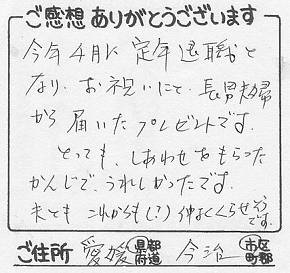 ご感想ありがとうございます
今年4月に定年退職と
なり、お祝いにて、長男夫婦
から届いたプレゼントです。
とっても、しあわせをもらった
かんじで、うれしかったです。
夫とも これからも(?)仲よくくらせそう
です。
ご住所 愛媛 都道府県 今治 市区町郡